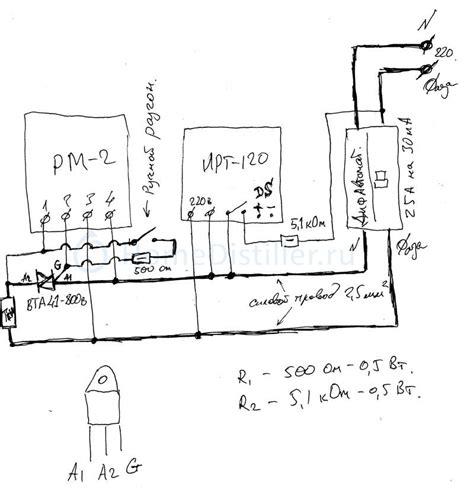 N
220
Фаза
Ручной разгон.
РМ-2
1 2 3 4
ИРТ-120
220в
5,1 кОм
Дифавтомат.
25А на 30мА
N
Фаза
HomeDistiller.ru
A2
G
A1
500 Ом
ВТА41-800в
ТЭН
силовой провод 2,5мм²
R1 - 500 Ом - 0,5 Вт.
R2 - 5,1 кОм - 0,5 Вт.
A1 A2 G